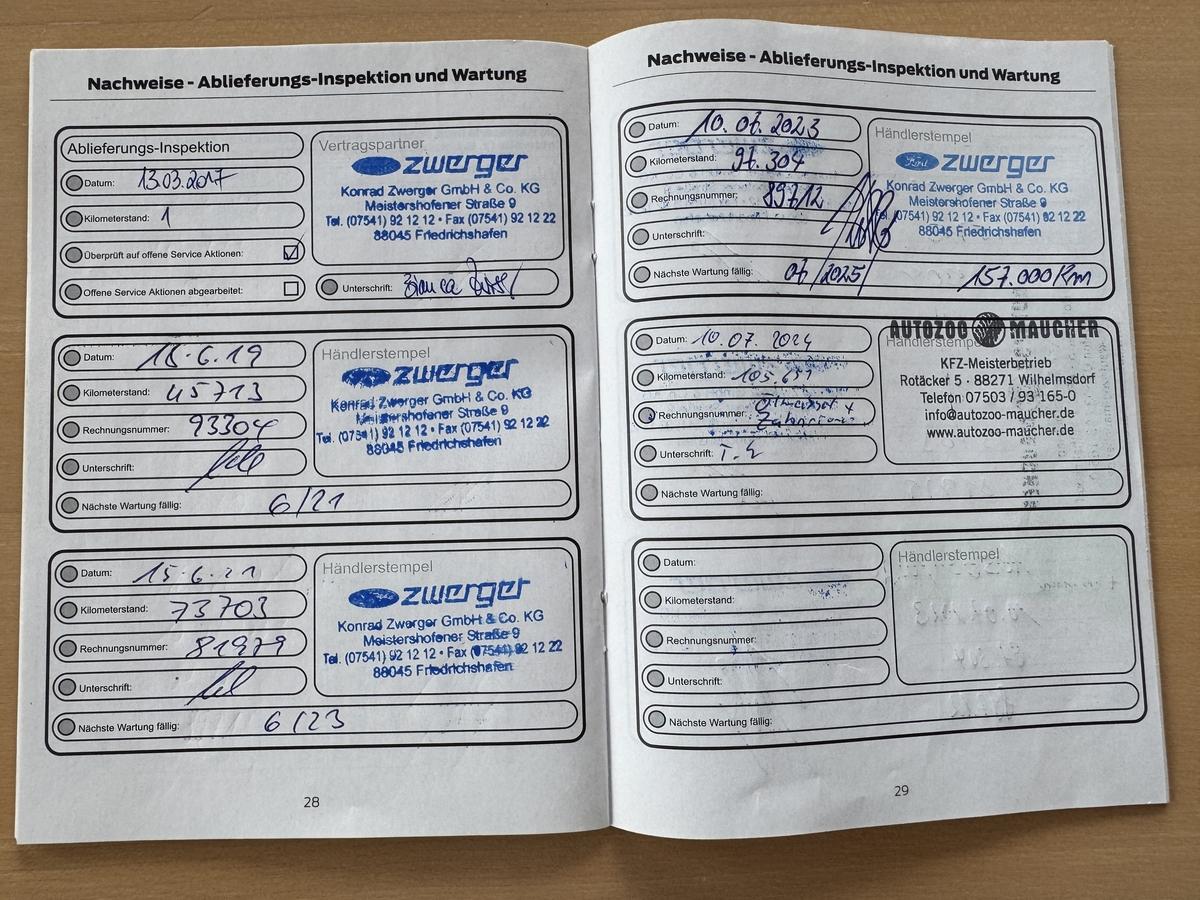 Nachweise - Ablieferungs-Inspektion und Wartung
Ablieferungs-Inspektion
Datum: 13.03.2017
Kilometerstand: 1
Überprüft auf offene Service Aktionen:
Offene Service Aktionen abgearbeitet:
Vertragspartner
zwerger
Konrad Zwerger GmbH & Co. KG
Meistershofener Straße 9
Tel. (07541) 92 12 12 • Fax (07541) 92 12 22
88045 Friedrichshafen
Unterschrift: Bianca
Datum: 18.6.19
Kilometerstand: 45713
Rechnungsnummer: 93304
Unterschrift:
Nächste Wartung fällig: 6/21
Händlerstempel
zwerger
Konrad Zwerger GmbH & Co. KG
Meistershofener Straße 9
Tel. (07541) 92 12 12 • Fax (07541) 92 12 22
88045 Friedrichshafen
Datum: 15.6.21
Kilometerstand: 73703
Rechnungsnummer: 81979
Unterschrift:
Nächste Wartung fällig: 6/23
Händlerstempel
zwerger
Konrad Zwerger GmbH & Co. KG
Meistershofener Straße 9
Tel. (07541) 92 12 12 • Fax (07541) 92 12 22
88045 Friedrichshafen
28
Nachweise - Ablieferungs-Inspektion und Wartung
Datum: 10.07.2023
Kilometerstand: 97.304
Rechnungsnummer: 89712
Unterschrift:
Nächste Wartung fällig: 07/2025/ 157.000 Km
Händlerstempel
Ford zwerger
Konrad Zwerger GmbH & Co. KG
Meistershofener Straße 9
Tel. (07541) 92 12 12 • Fax (07541) 92 12 22
88045 Friedrichshafen
Datum: 10.07.2024
Kilometerstand:
Rechnungsnummer:
Unterschrift:
Nächste Wartung fällig:
Händlerstempel
AUTOZOO MAUCHER
KFZ-Meisterbetrieb
Rotäcker 5 · 88271 Wilhelmsdorf
Telefon 07503 / 93 165-0
info@autozoo-maucher.de
www.autozoo-maucher.de
Datum:
Kilometerstand:
Rechnungsnummer:
Unterschrift:
Nächste Wartung fällig:
Händlerstempel
29